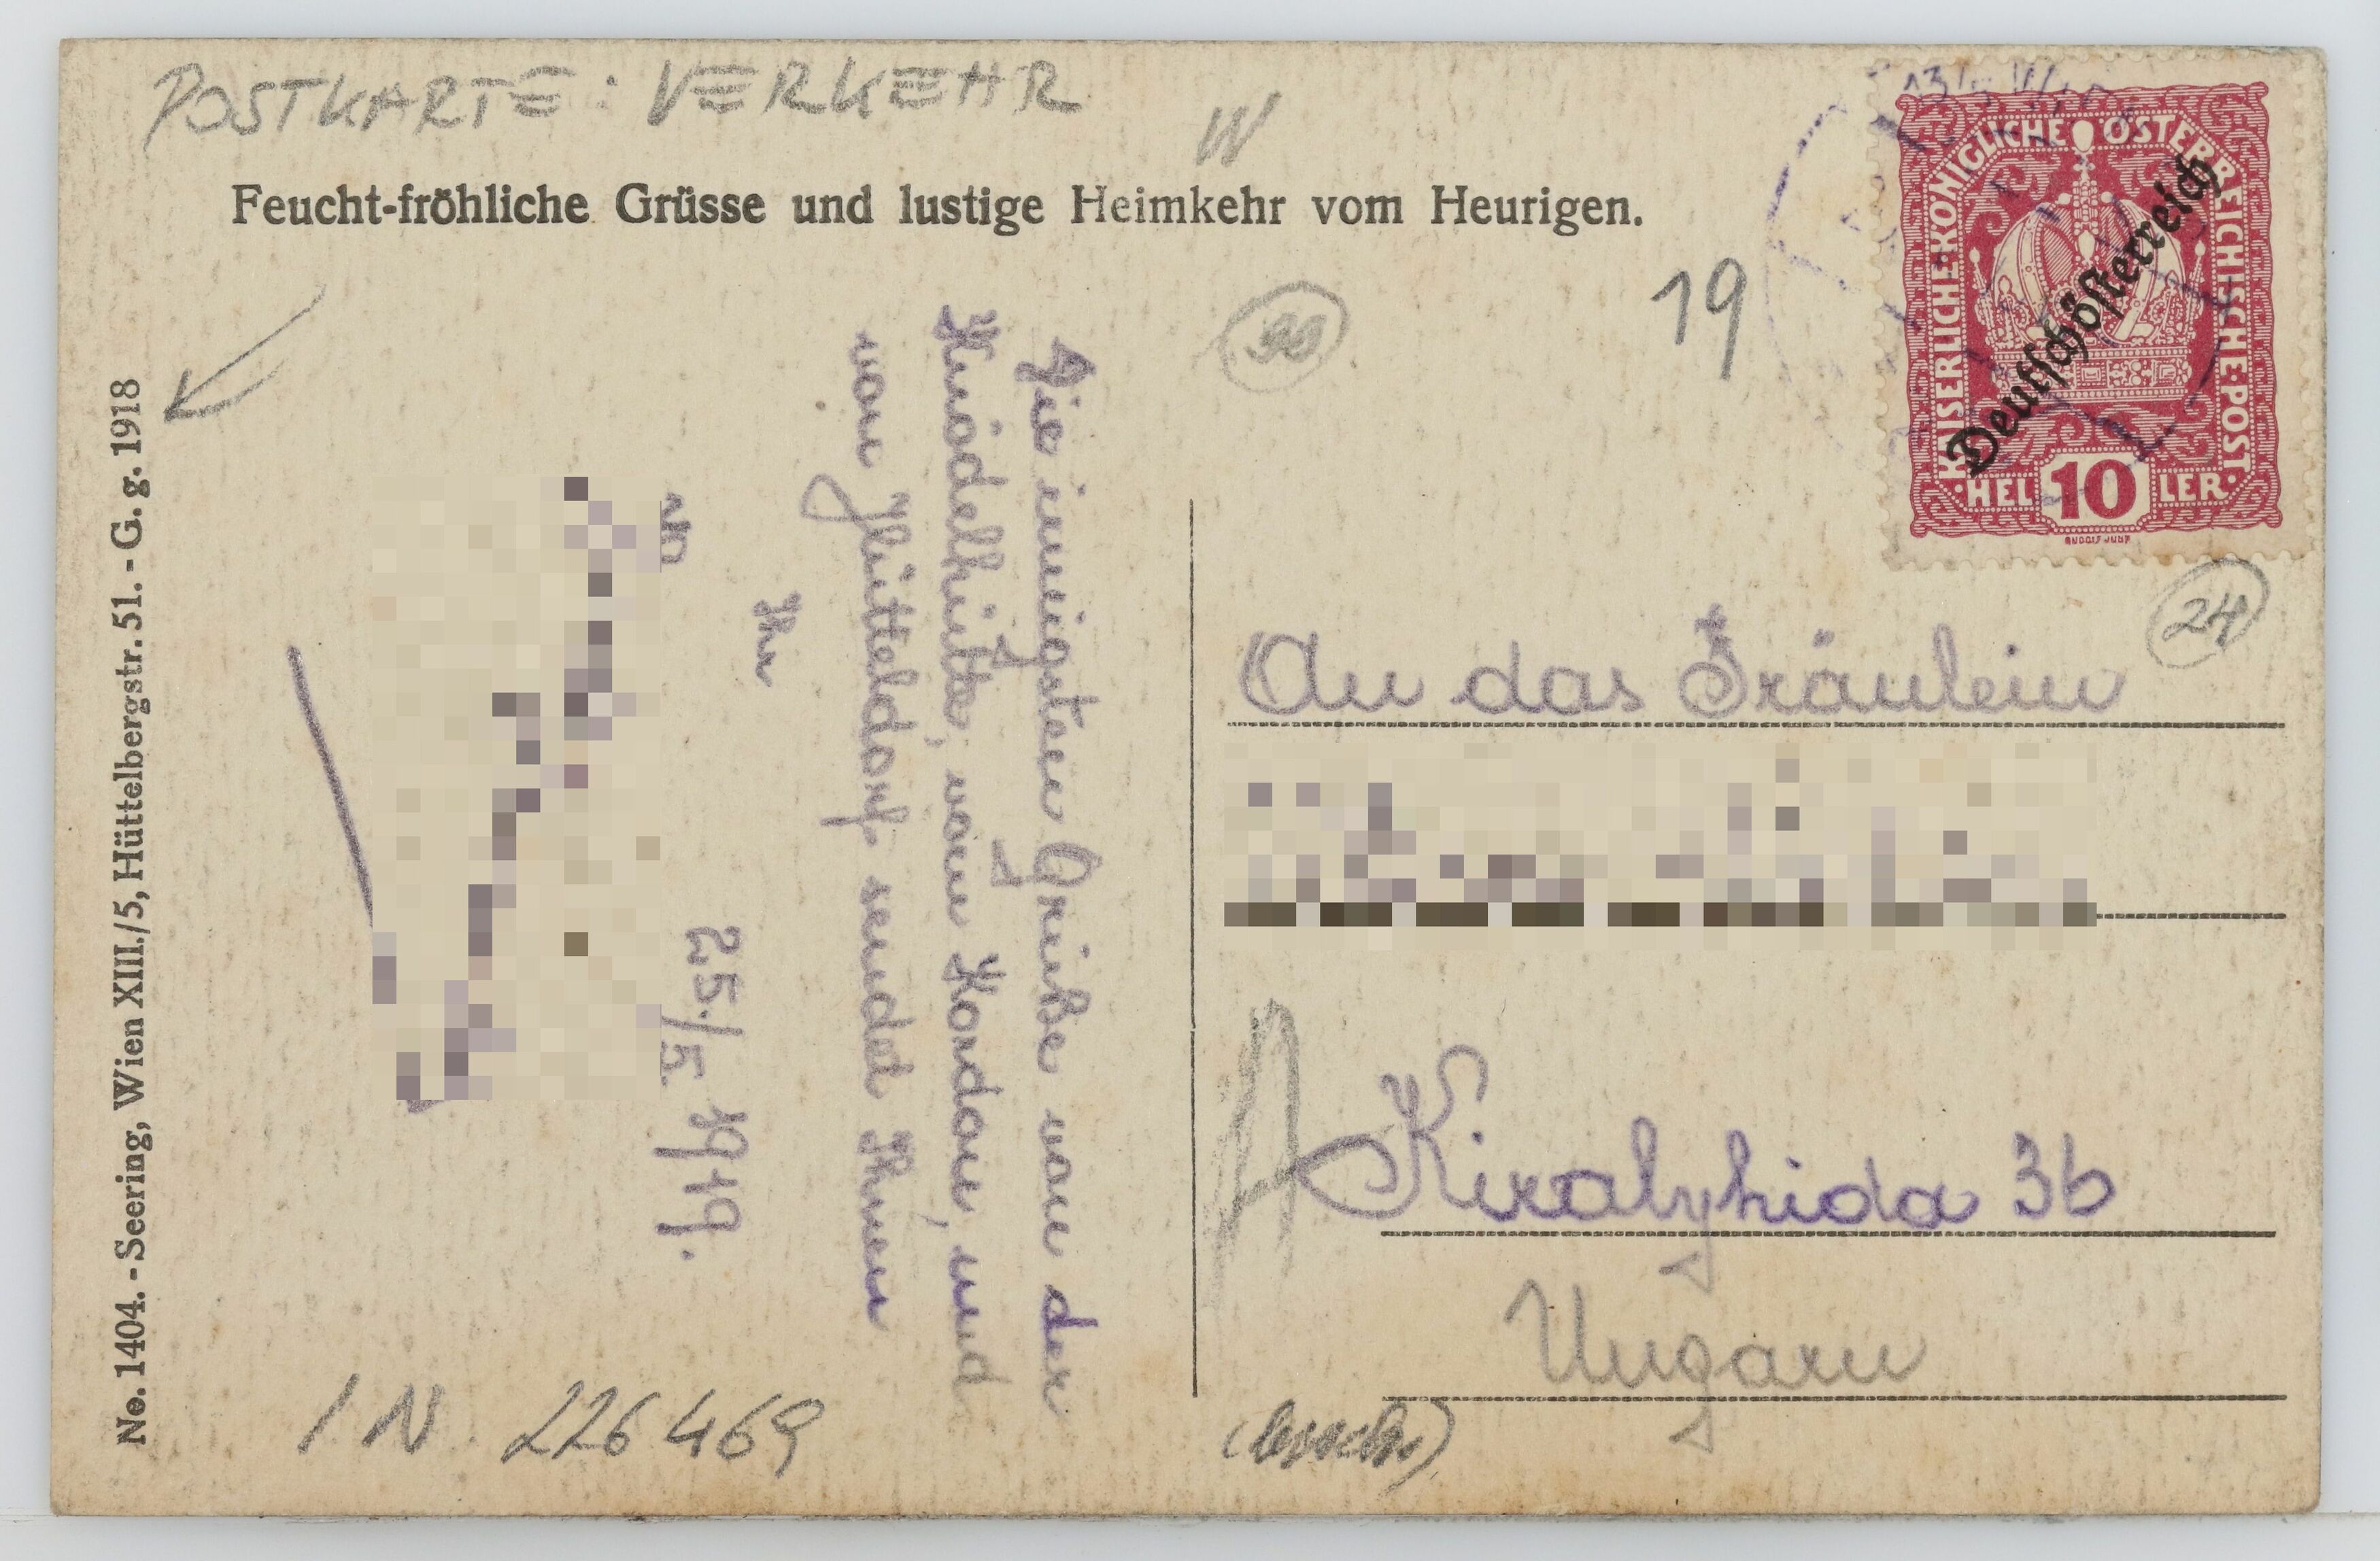 POSTKARTE: VERKEHR
W
Feucht-fröhliche Grüsse und lustige Heimkehr vom Heurigen.
19
KAISERLICHE·KÖNIGLICHE ÖSTERREICHISCHE·POST·
Deutschösterreich
HEL 10 LER
RUDOLF JUNK
24
No. 1404. - Seering, Wien XIII./5, Hüttelbergstr. 51. - G. g. 1918
Die innigsten Grüße von der
Knödelhütte, vom Kordon, und
von Hütteldorf sendet Ihnen
Ihr
25./5. 1919.
An das Fräulein
Kiralyhida 36
Ungarn
IN 226469